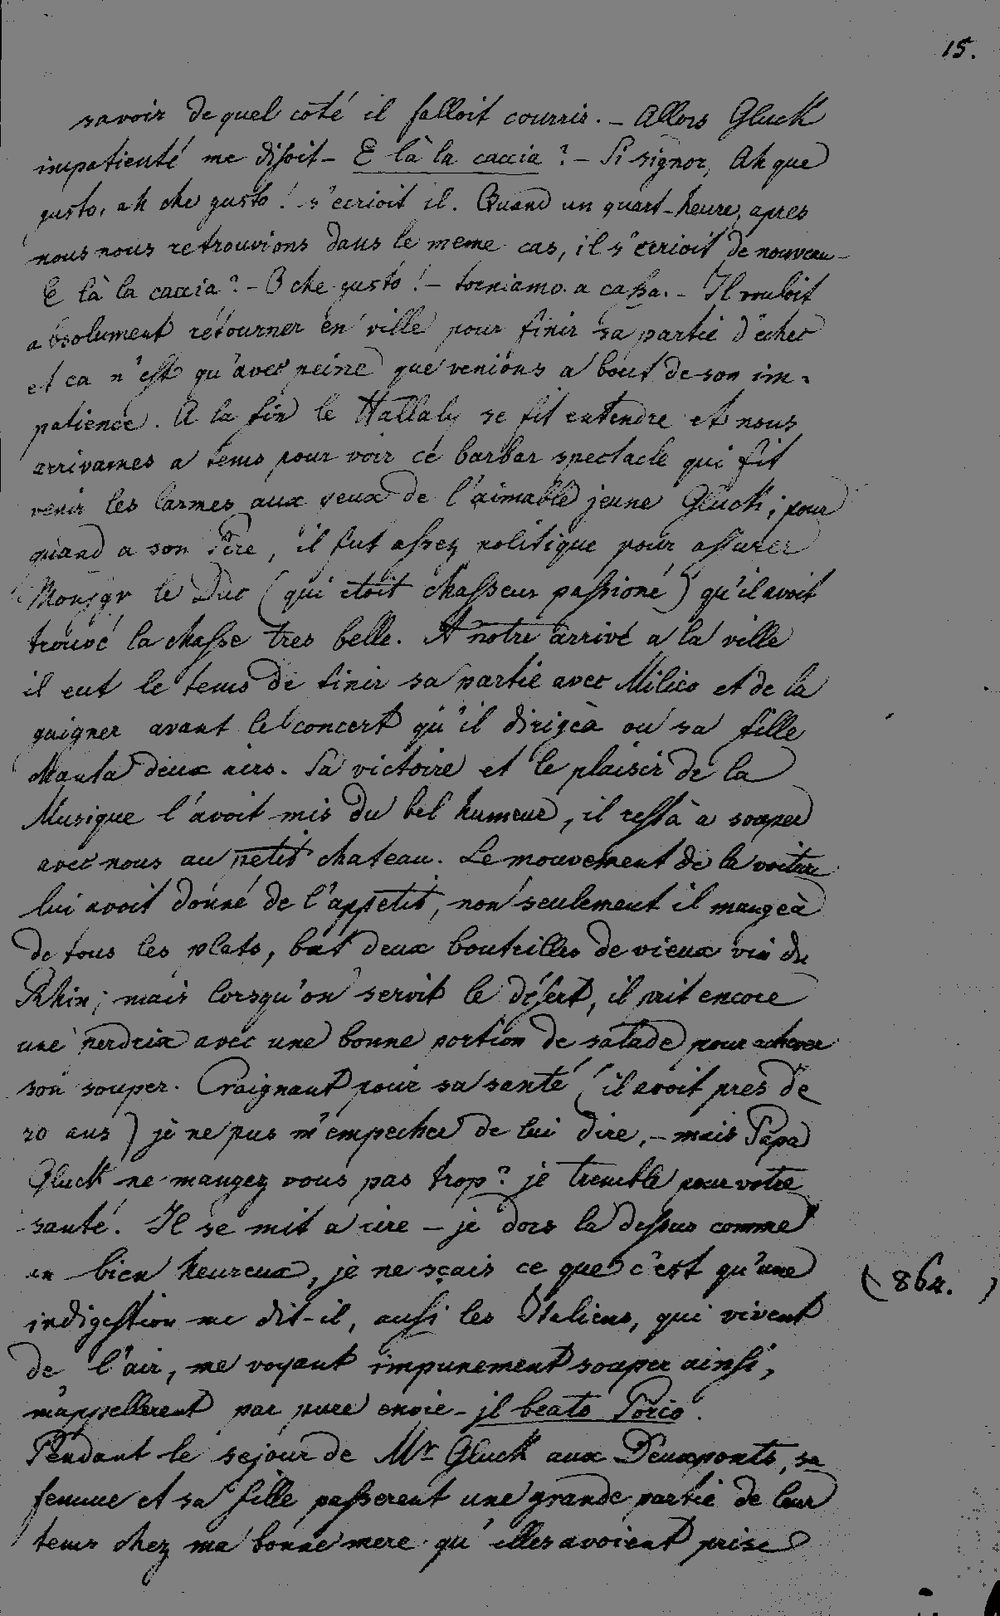 15.
savoir de quel coté il falloit courrir. – Allors Gluck
impatienté me disoit – E là la caccia ? – Si signor, Ah que
gusto, ah che gusto ! s'ecrioit il. Quand un quart-heure, apres
nous nous retrouvions dans le meme cas, il s'ecrioit de nouveau –
E là la caccia ? – O che gusto ! – torniamo a cassa. – Il vouloit
absolument retourner en ville pour finir sa partie d'echec
et ca n'est qu'avec peine que venions a bout de son im-
patience. A la fin le Hallaly se fit entendre et nous
arrivames a tems pour voir ce barbar spectacle qui fit
venir les larmes aux yeux de l'aimable jeune Gluck ; pour
quand a son Pere, il fut assez politique pour assurer
Monsgr le Duc (qui etoit chasseur passioné) qu'il avoit
trouvé la chasse tres belle. A notre arrivé a la ville
il eut le tems de finir sa partie avec Milico et de la
gaigner avant le concert qu'il dirigea ou sa fille
chanta deux airs. Sa victoire et le plaisir de la
Musique l'avoit mis du bel humeur, il resta a souper
avec nous au petit chateau. Le mouvement de la voiture
lui avoit donné de l'appetit, non seulement il mangeà
de tous les plats, but deux bouteilles de vieux vin du
Rhin ; mais lorsqu'on servit le désert, il prit encore
une perdrix avec une bonne portion de salade pour achever
son souper. Craignant pour sa santé (il avoit pres de
70 ans) je ne pus m'empecher de lui dire, – mais Papa
Gluck ne mangez vous pas trop ? je tremble pour votre
santé. Il se mit a rire – je dors la dessus comme
un bien heureux, je ne sçais ce que c'est qu'une
(864.)
indigestion me dit-il, aussi les Italiens, qui vivent
de l'air, me voyant impunement souper ainsi,
m'appellerent par pure envie – il beato Porco.
Pendant le sejour de Mr Gluck aux Deuxponts, sa
femme et sa fille passerent une grande partie de leur
tems chez ma bonne mere qu'elles avoient prise